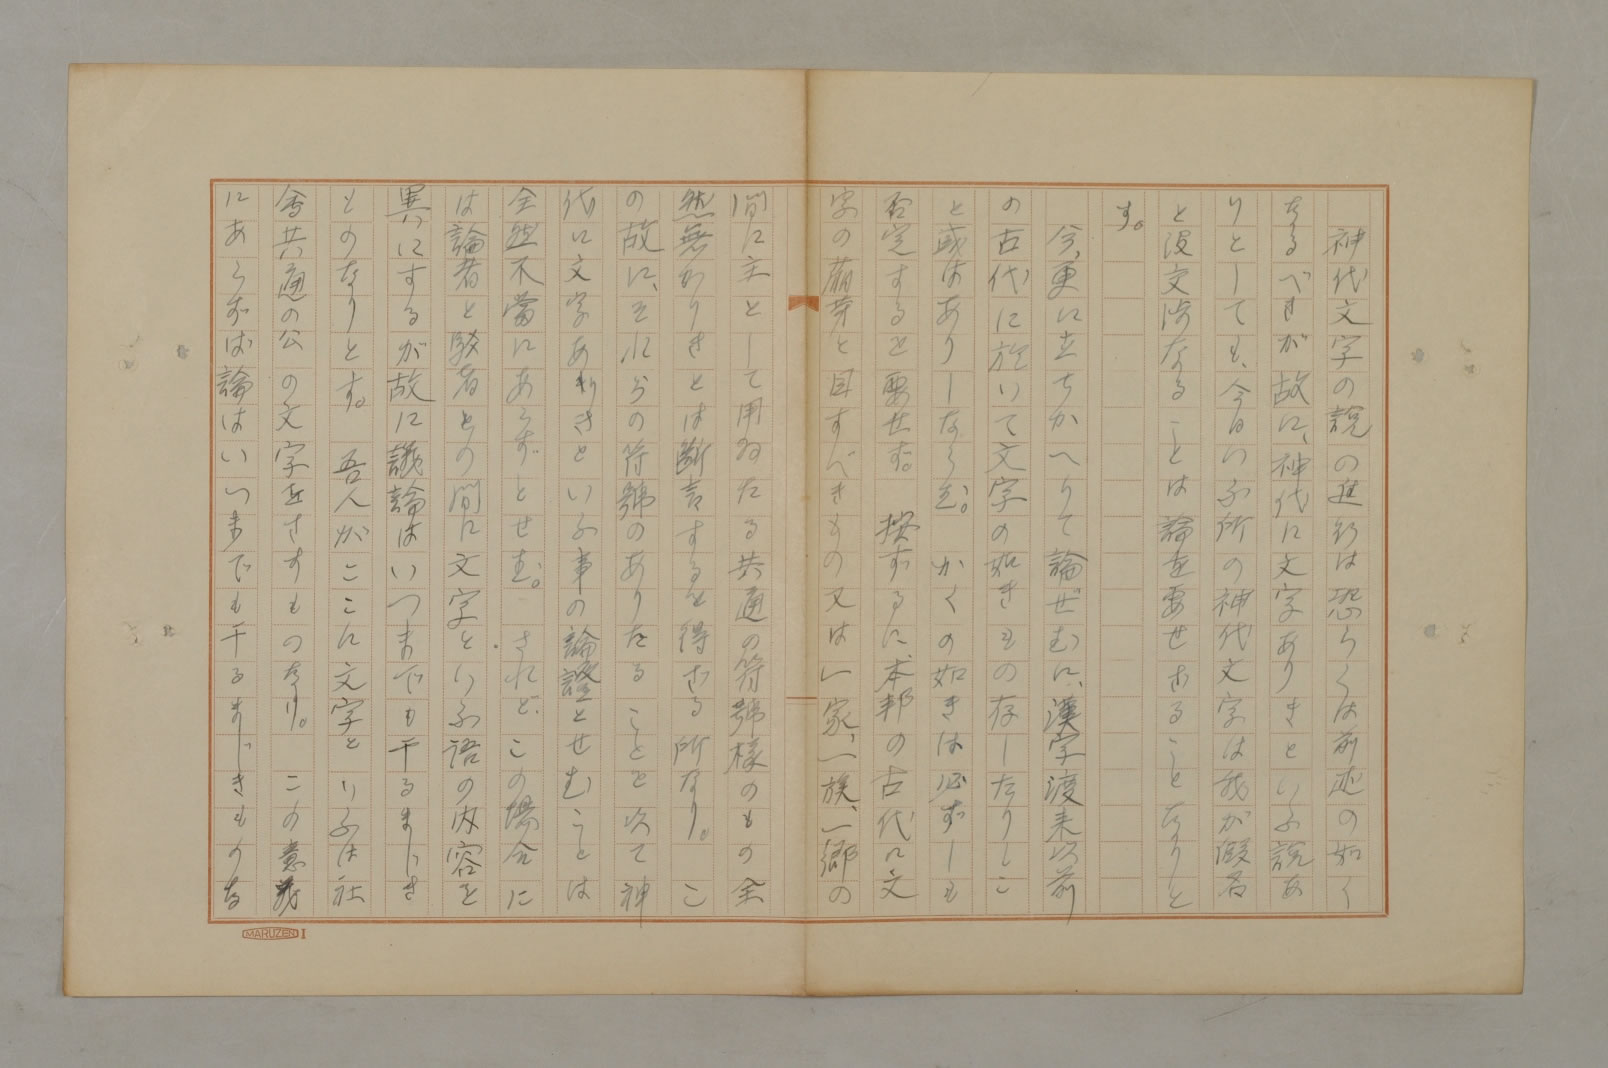 神代文字の説の進行は恐らくは前述の如く
なるべきが故に、神代に文字ありきといふ説あ
りとしても、今日いふ所の神代文字は我が假名
と没交渉なることは論を要せざることなりと
す。
今、更に立ちかへりて論ぜむに、漢字渡来以前
の古代に於いて文字の如きもの存したりしこ
と或はありしならむ。かくの如きは必ずしも
否定するを要せず。按ずるに、本邦の古代に文
字の萠芽と目すべきもの又は一家、一族、一郷の
間に主として用ゐたる共通の符號様のもの全
然無かりきとは斷言するを得ざる所なり。こ
の故に、それらの符號のありたることを以て神
代に文字ありきといふ事の論證とせむことは
全然不當にあらずとせむ。されど、この場合に
は論者と駁者との間に文字といふ語の内容を
異にするが故に議論はいつまでも干るまじき
ものなりとす。吾人がここに文字といふは社
會共通の公の文字をさすものなり。この意義
にあらずば論はいつまでも干るまじきものな
MARUZEN I